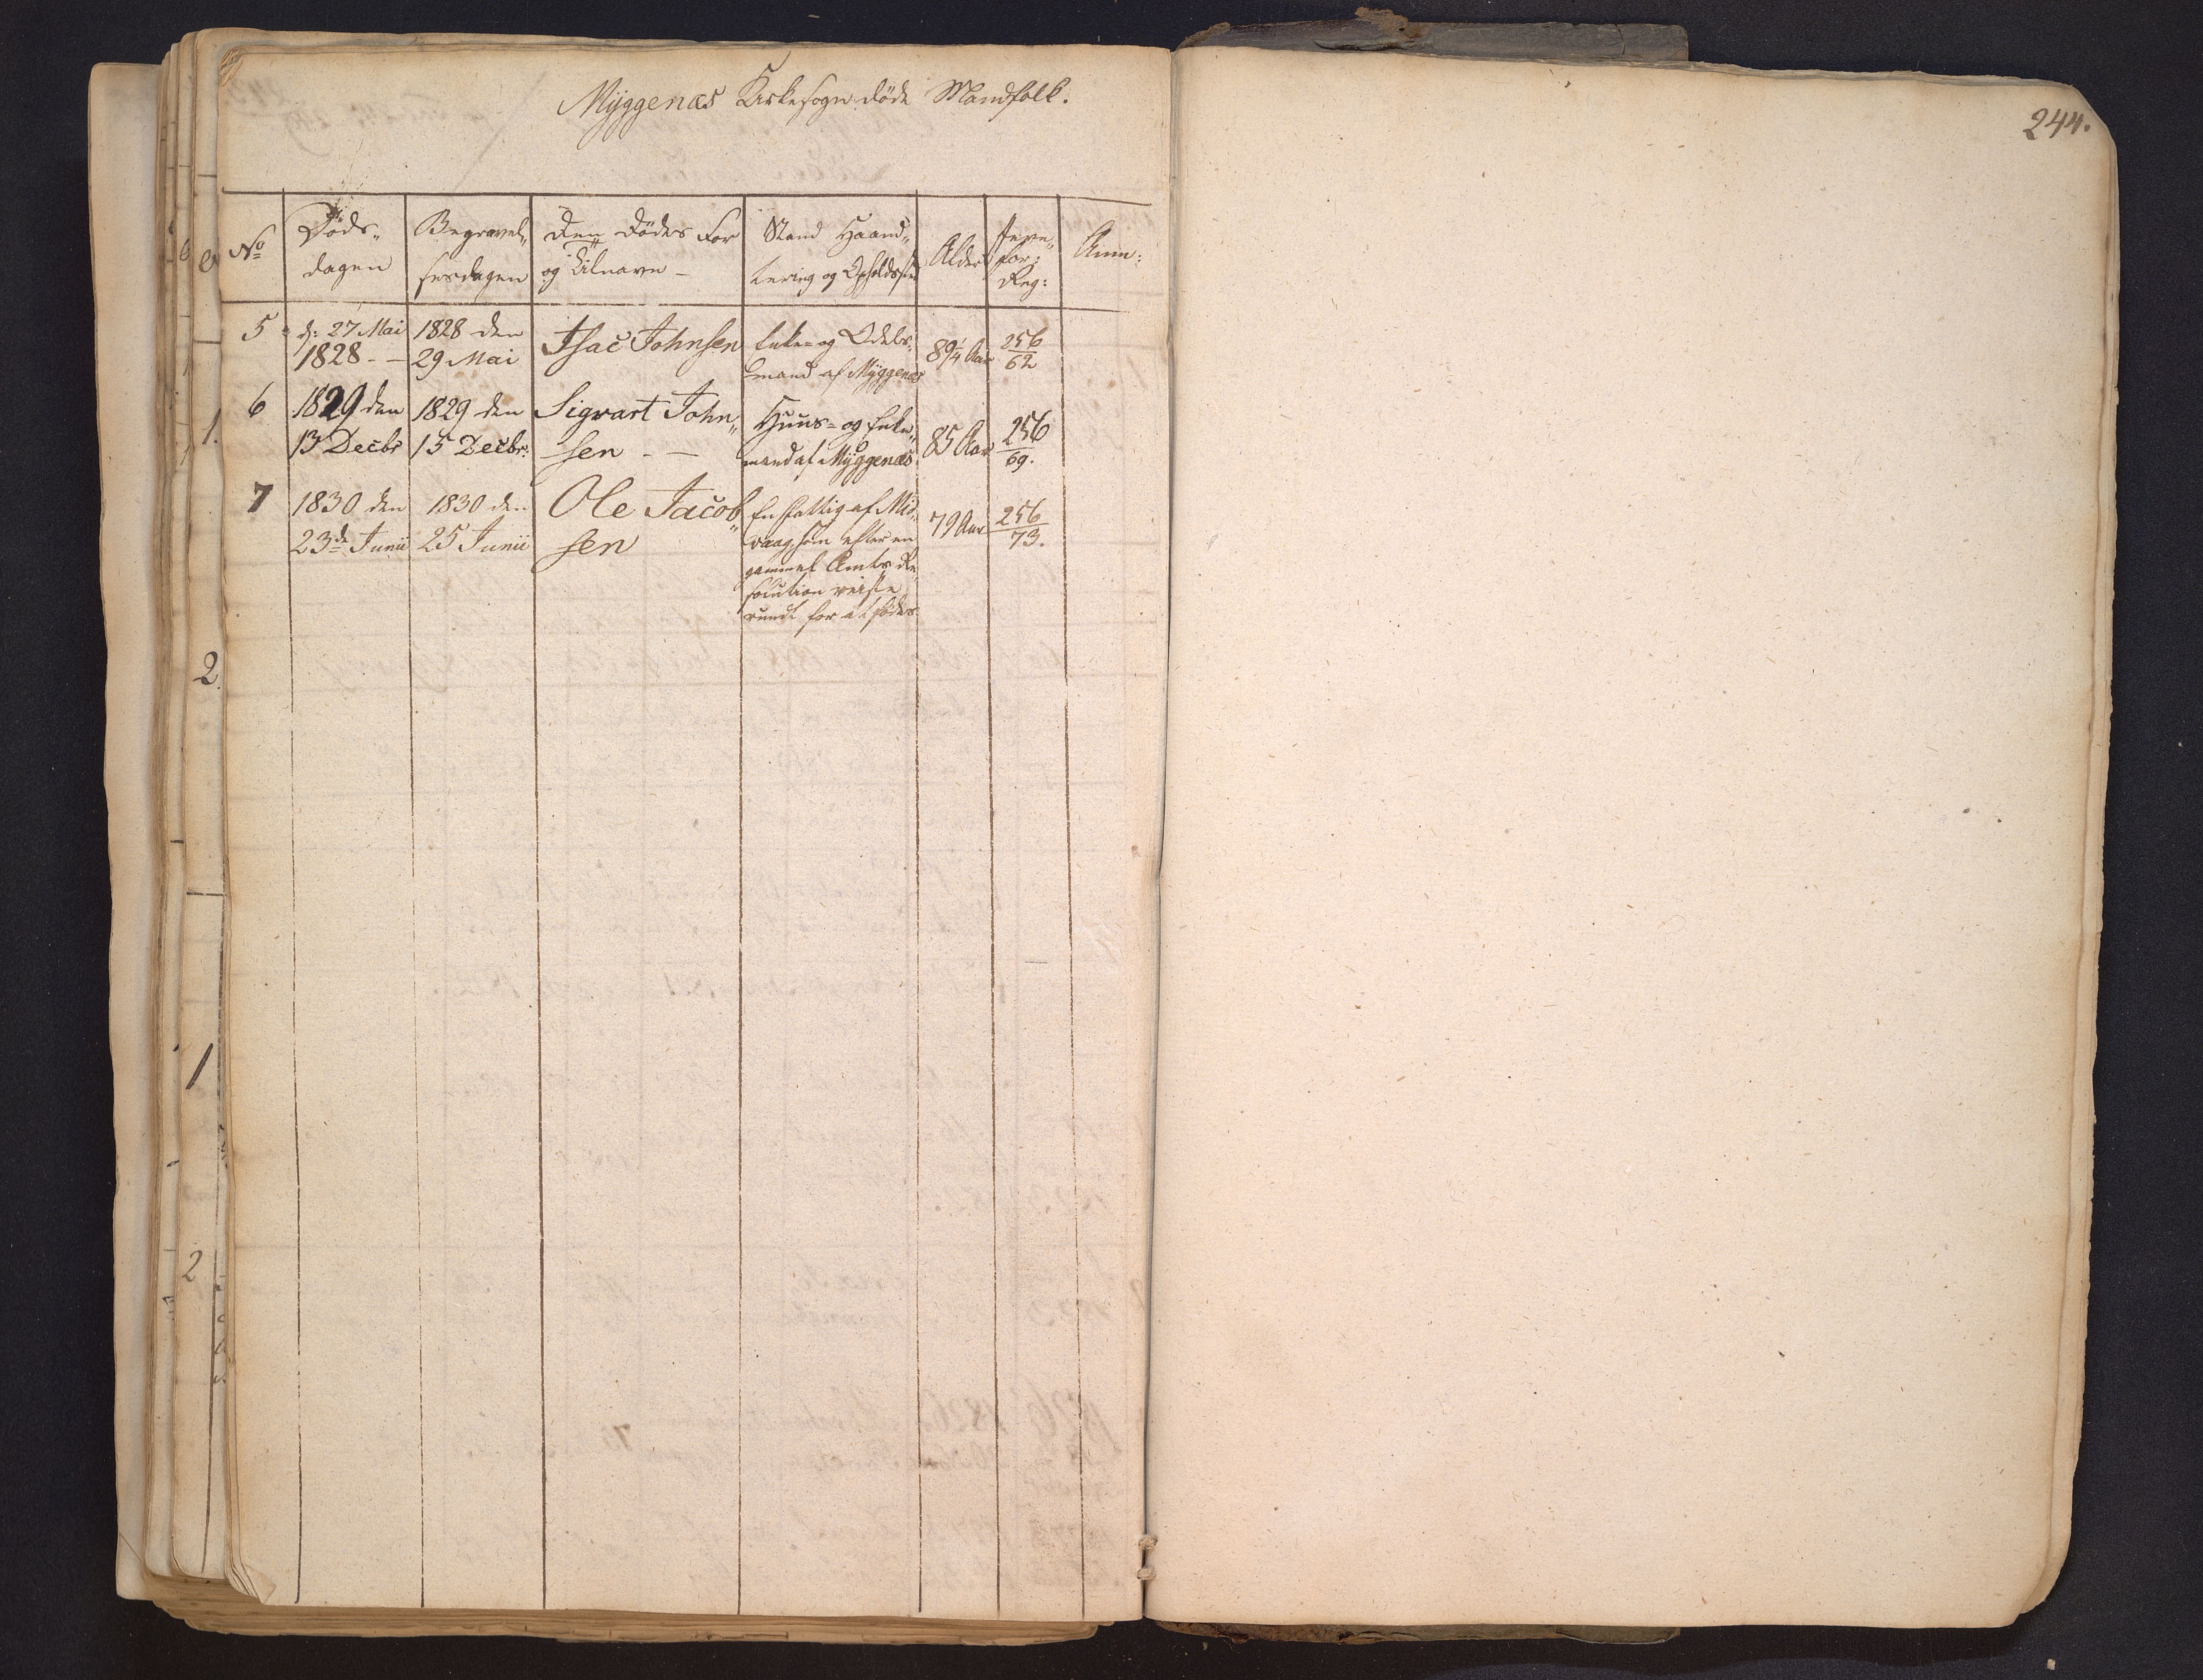 Myggenæs Kirkesogn døde Mandfolk.
244.
No
Døds-
dagen
Begravel-
sesdagen
Den Dødes For
og Tilnavn -
Stand Haand-
tering og Opholdsste
Alder
Jevn-
for:
Reg:
Anm:
5
d: 27 Mai
1828 - -
1828 den
29 Mai
Isac Johnsen
Enke- og Odels-
mand af Myggenæs
89 1/4 Aar
256
62
6
1829 den
13 Decbr
1829 den
15 Decbr:
Sigvart John-
sen - -
Huus- og Enke-
mand af Myggenæs
85 Aar
256
69.
7
1830 den
23de Junii
1830 den
25 Junii
Ole Jacob-
sen
En fattig af Mid-
vaag som efter en
gammel Amts Re-
solution reiste
rundt for at fødes
79 Aar
256
73.
1.
2.
1
2